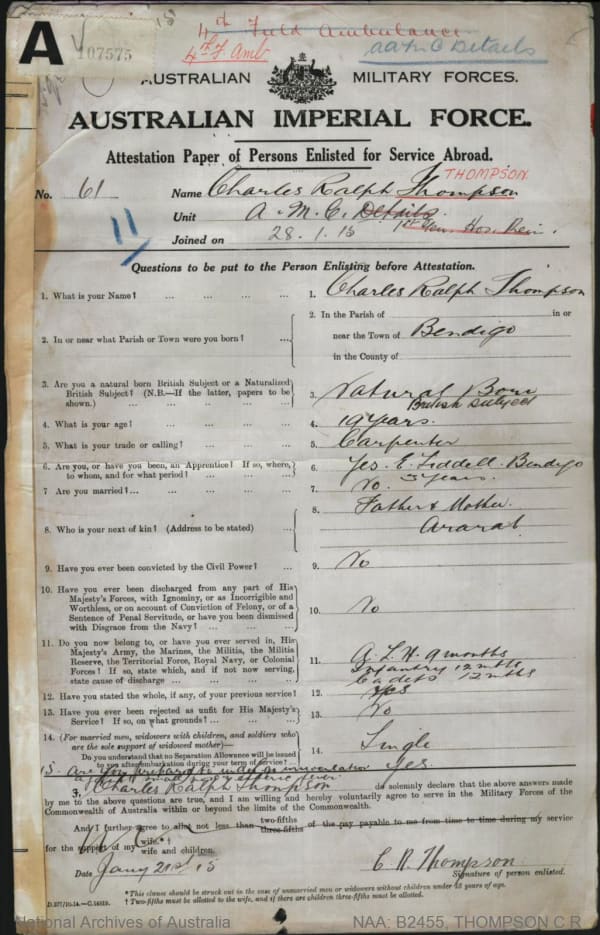 A
V 15
107575
4th Field Ambulance
4th F. Amb
AAMC Details
AUSTRALIAN MILITARY FORCES.
AUSTRALIAN IMPERIAL FORCE.
Attestation Paper of Persons Enlisted for Service Abroad.
THOMPSON
No. 61 Name Charles Ralph Thompson
Unit A.M.C. Details. 1st Gen. Hos. Rein.
11
Joined on 28.1.15
Questions to be put to the Person Enlisting before Attestation.
1. What is your Name? ... ... ... ... 1. Charles Ralph Thompson
2. In or near what Parish or Town were you born? ... ... 2. In the Parish of in or
near the Town of Bendigo
in the County of
3. Are you a natural born British Subject or a Naturalized British Subject? (N.B.—If the latter, papers to be shown.) ... ... ... ... ... 3. Natural Born
British Subject
4. What is your age? ... ... ... ... 4. 19 years.
5. What is your trade or calling? ... ... ... 5. Carpenter
6. Are you, or have you been, an Apprentice? If so, where, to whom, and for what period? ... ... ... 6. Yes. E. Liddell. Bendigo
3 years.
7 Are you married? ... ... ... ... 7. No.
8. Who is your next of kin? (Address to be stated) ... 8. Father & Mother.
Ararat
9. Have you ever been convicted by the Civil Power? ... 9. No
10. Have you ever been discharged from any part of His
Majesty's Forces, with Ignominy, or as Incorrigible and
Worthless, or on account of Conviction of Felony, or of a
Sentence of Penal Servitude, or have you been dismissed
with Disgrace from the Navy? ... ... ... 10. No
11. Do you now belong to, or have you ever served in, His
Majesty's Army, the Marines, the Militia, the Militia
Reserve, the Territorial Force, Royal Navy, or Colonial
Forces? If so, state which, and if not now serving,
state cause of discharge ... ... ... 11. A.L.H. 9 months
Infantry 12 mths
Cadets 12 mths
12. Have you stated the whole, if any, of your previous service? 12. Yes
13. Have you ever been rejected as unfit for His Majesty's
Service? If so, on what grounds? ... ... 13. No
14. (For married men, widowers with children, and soldiers who
are the sole support of widowed mother)—
Do you understand that no Separation Allowance will be issued
to you after embarkation during your term of service? ... 14. Single
15. Are you prepared to undergo inoculation
against small pox & enteric fever yes.
I, Charles Ralph Thompson do solemnly declare that the above answers made
by me to the above questions are true, and I am willing and hereby voluntarily agree to serve in the Military Forces of the
Commonwealth of Australia within or beyond the limits of the Commonwealth.
And I further agree to allot not less than two-fifths three-fifths of the pay payable to me from time to time during my service
for the support of my wife.*† wife and children.
Date Jany 21st 15
C R Thompson
Signature of person enlisted.
*This clause should be struck out in the case of unmarried men or widowers without children under 18 years of age.
† Two-fifths must be allotted to the wife, and if there are children three-fifths must be allotted.
D.277/10.14.—C.14819.
National Archives of Australia NAA: B2455, THOMPSON C R